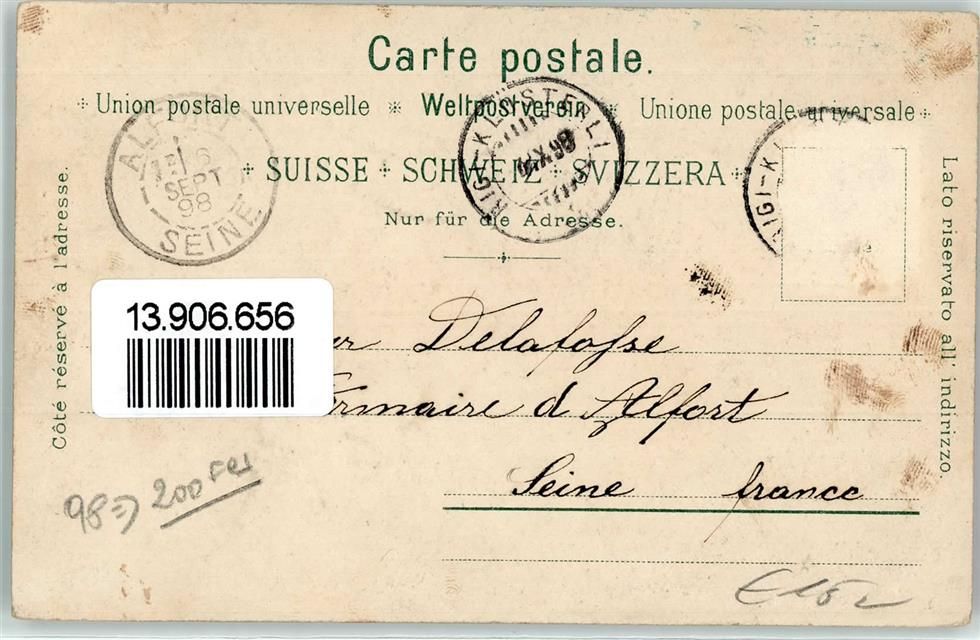 Carte postale.
Union postale universelle * Weltpostverein * Unione postale universale
SUISSE + SCHWEIZ + SVIZZERA
Nur für die Adresse.
Côté réservé à l'adresse.
Lato riservato all' indirizzo.
SEPT
98
SEINE
RIGI-KLÖSTERLI
RIGI-K
13.906.656
Delafosse
d'Alfort
Seine france
98 => 200 Frs